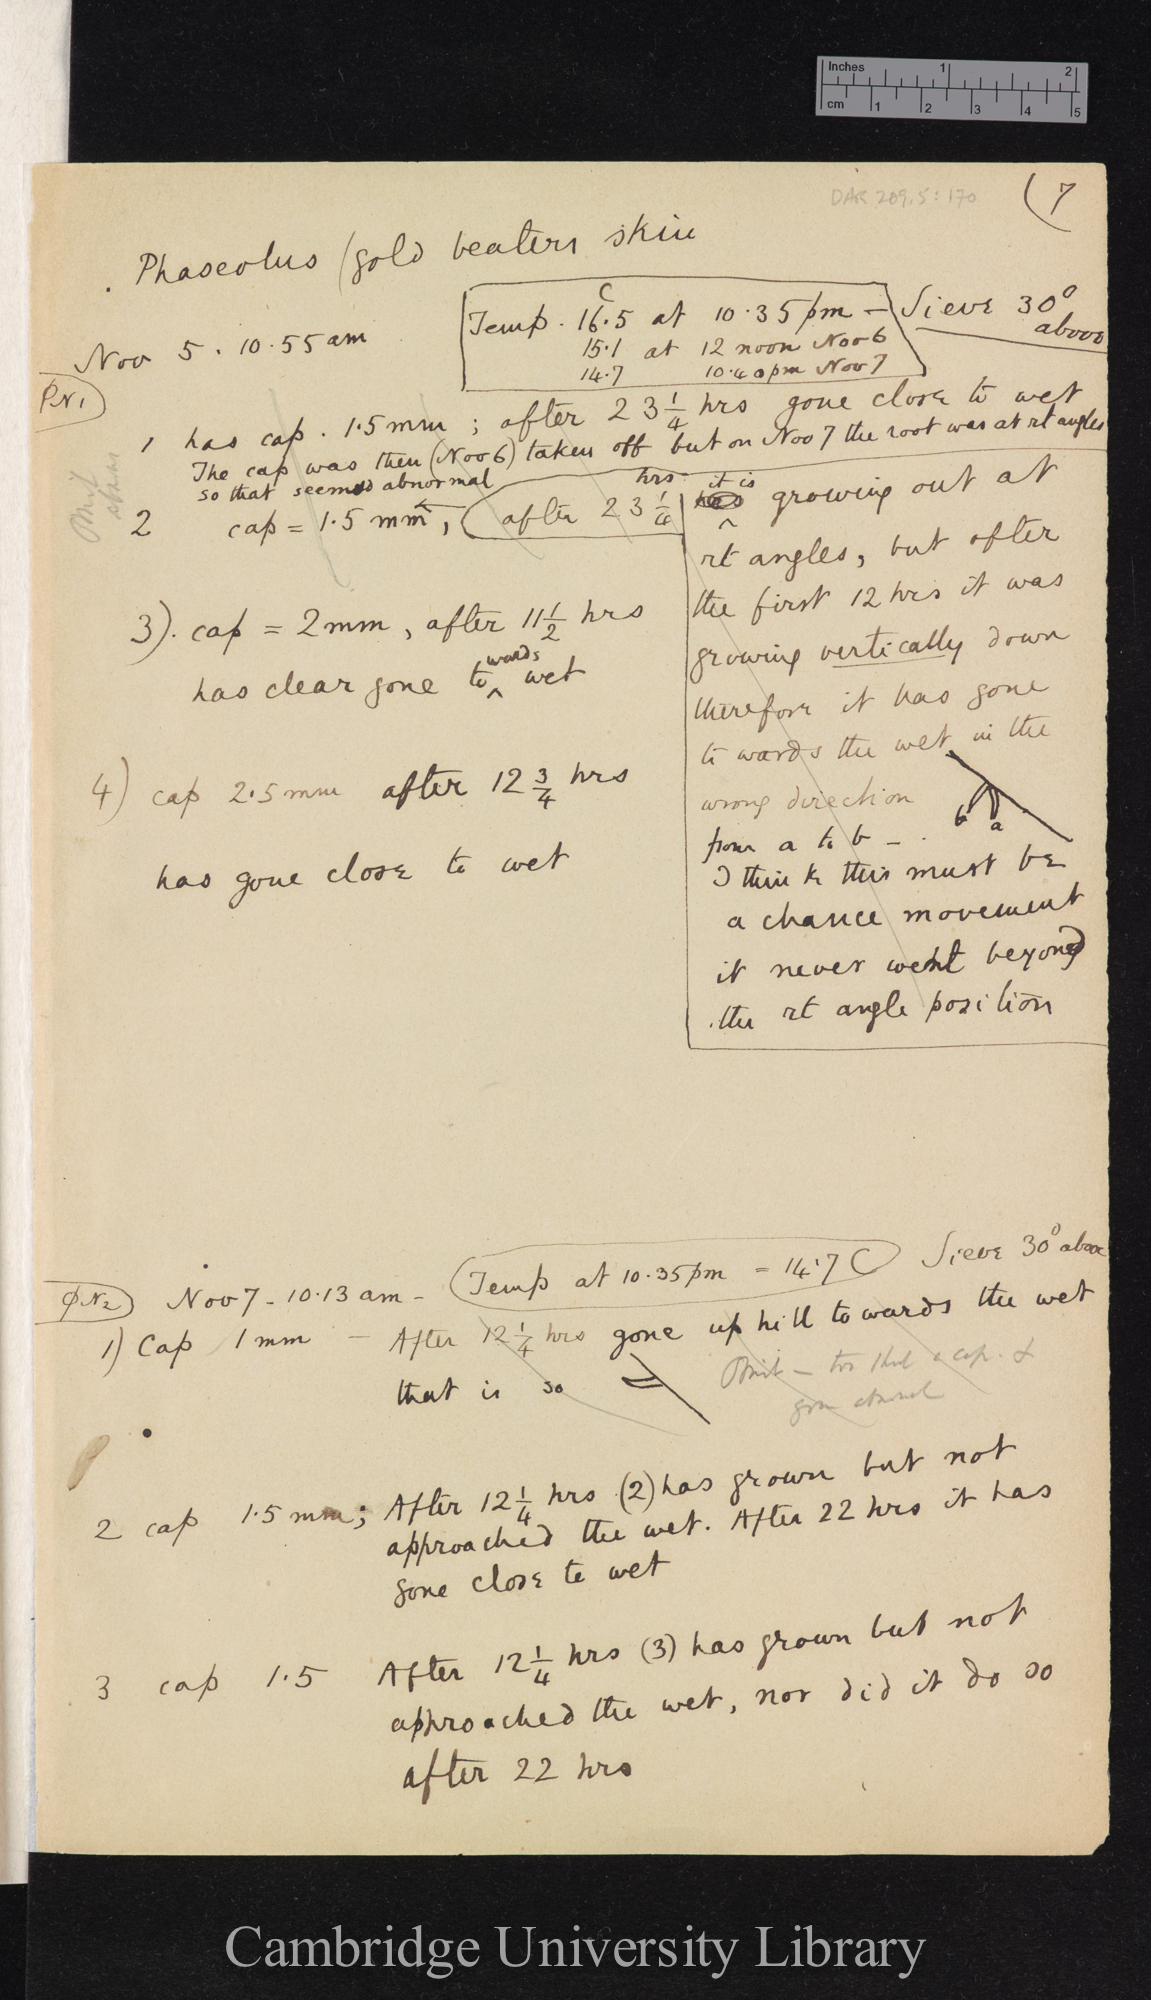 Inches 1 2
cm 1 2 3 4 5
DAR 209.5: 170
(7
Phaseolus (gold beaters skin
Nov 5. 10.55 am
Temp. 16.5 C at 10.35 pm — Sieve 30° above
15.1 at 12 noon Nov 6
14.7 10.40 pm Nov 7
PN1
1 has cap. 1.5 mm; after 23 1/4 hrs gone close to wet
The cap was then (Nov 6) taken off but on Nov 7 the root was at rt angles
so that seemed abnormal
2 cap = 1.5 mm, after 23 1/4 hrs it is growing out at
rt angles, but after
the first 12 hrs it was
growing vertically down
therefore it has gone
towards the wet in the
wrong direction
b a
from a to b —
I think this must be
a chance movement
it never went beyond
the rt angle position
3). cap = 2 mm, after 11 1/2 hrs
has clear gone towards wet
4) cap 2.5 mm after 12 3/4 hrs
has gone close to wet
PN2 Nov 7 - 10.13 am - Temp at 10.35 pm = 14.7 C Sieve 30° above
1) Cap 1 mm — After 12 1/4 hrs gone up hill towards the wet
that is so
2 cap 1.5 mm; After 12 1/4 hrs (2) has grown but not
approached the wet. After 22 hrs it has
gone close to wet
3 cap 1.5 After 12 1/4 hrs (3) has grown but not
approached the wet, nor did it do so
after 22 hrs
Cambridge University Library